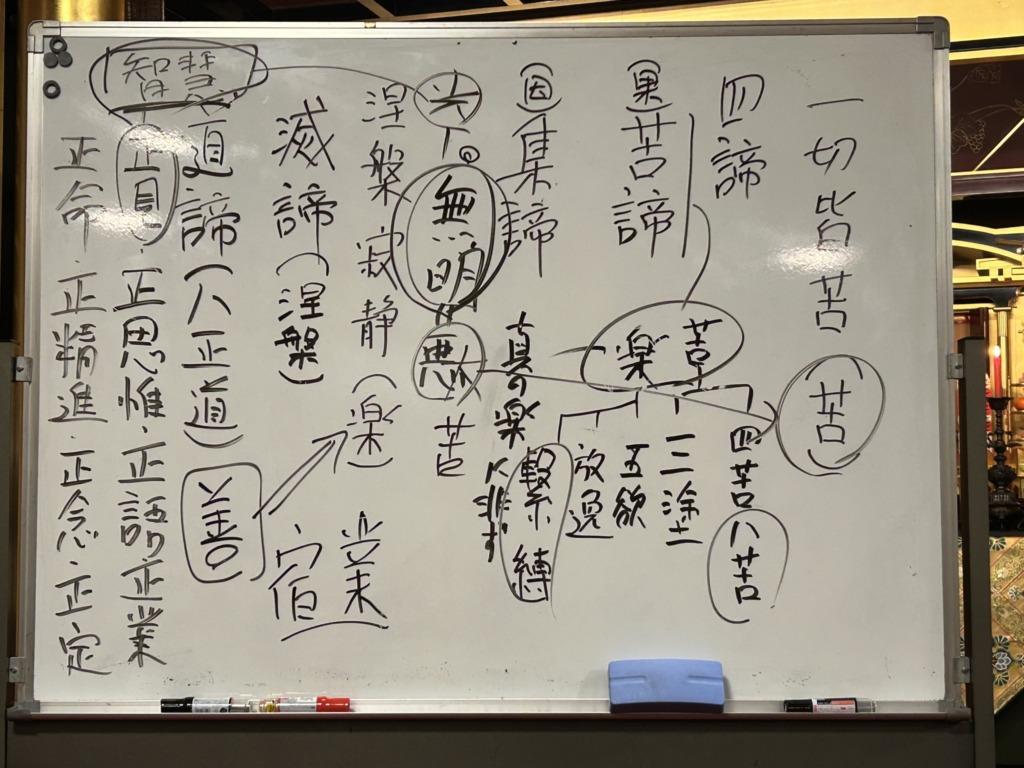 一切皆苦
(苦)
四諦
四苦八苦
三塗
五欲
放逸
繫縛
(果)苦諦
苦楽
(因)集諦
真の楽
に非ず
光
無明
悪
苦
涅槃寂静(楽)
業
宿
滅諦(涅槃)
道諦(八正道)
善
智慧
正見・正思惟・正語・正業
正命・正精進・正念・正定